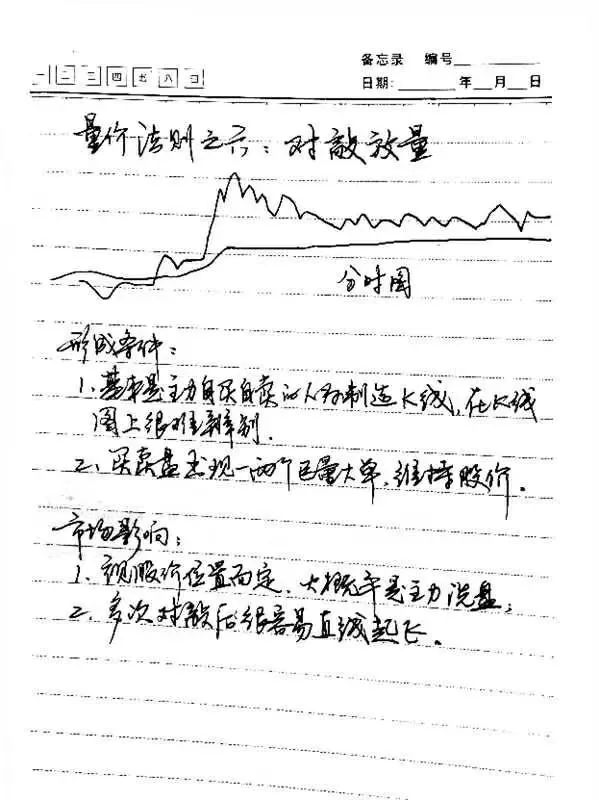 备忘录 编号
一 二 三 四 五 六 日
日期: 年 月 日
量价法则之六：对敲放量
分时图
形成条件：
1、基本是主力自买自卖的人为制造K线，在K线
图上很难辨别．
2、买卖盘出现一两个巨量大单，维持股价．
市场影响：
1、视股价位置而定、大概率是主力洗盘；
2、多次对敲后很容易直线起飞．